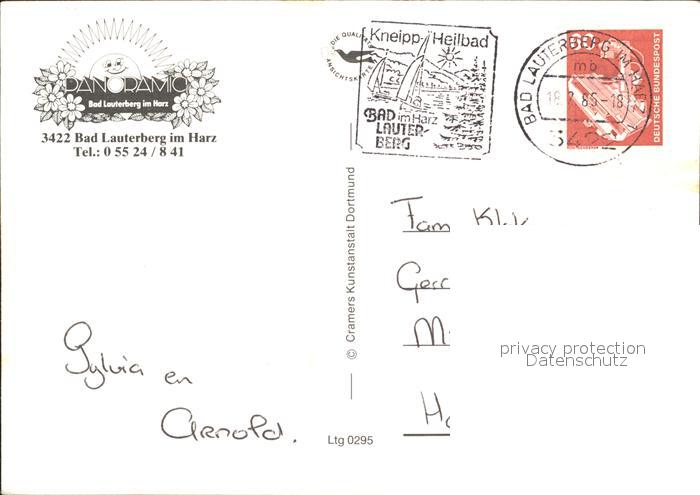 PANORAMIC
Bad Lauterberg im Harz
3422 Bad Lauterberg im Harz
Tel.: 0 55 24 / 8 41
DIE QUALITÄTS
ANSICHTSKARTE
Kneipp-Heilbad
BAD im Harz
LAUTER-
BERG
BAD LAUTERBERG IM HARZ
mb
18.7.85-18
3422
DEUTSCHE BUNDESPOST
© Cramers Kunstanstalt Dortmund
Fam
privacy protection
Datenschutz
Sylvia en
Arnold.
Ltg 0295